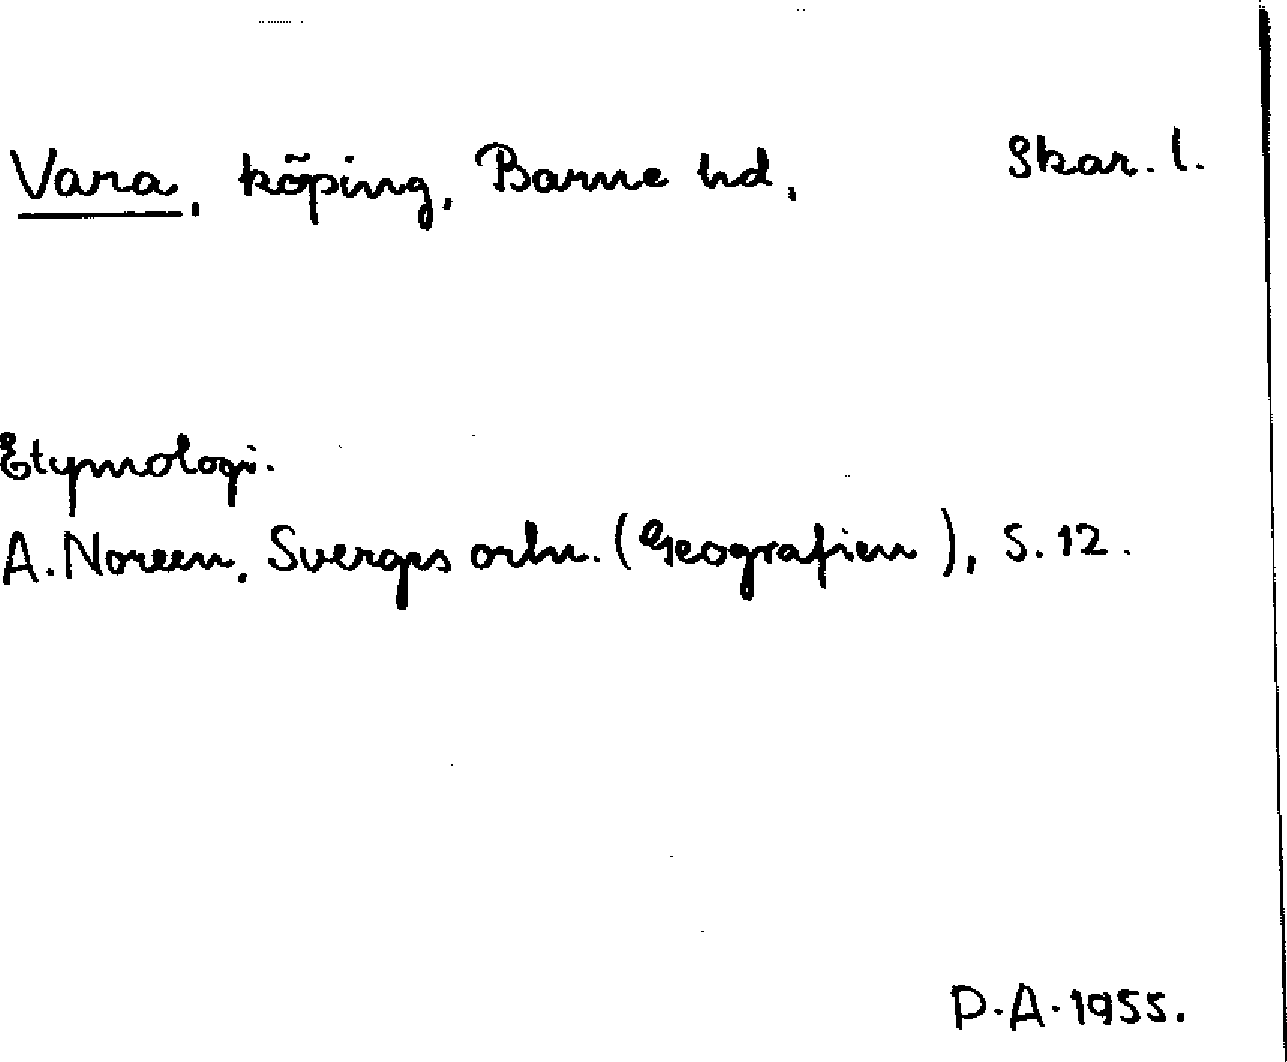 Vara, köping, Barne hd, Skar. l.
Etymologi.
A. Noreen, Sverges ortn. (Geografien), s. 12.
P. A. 1955.